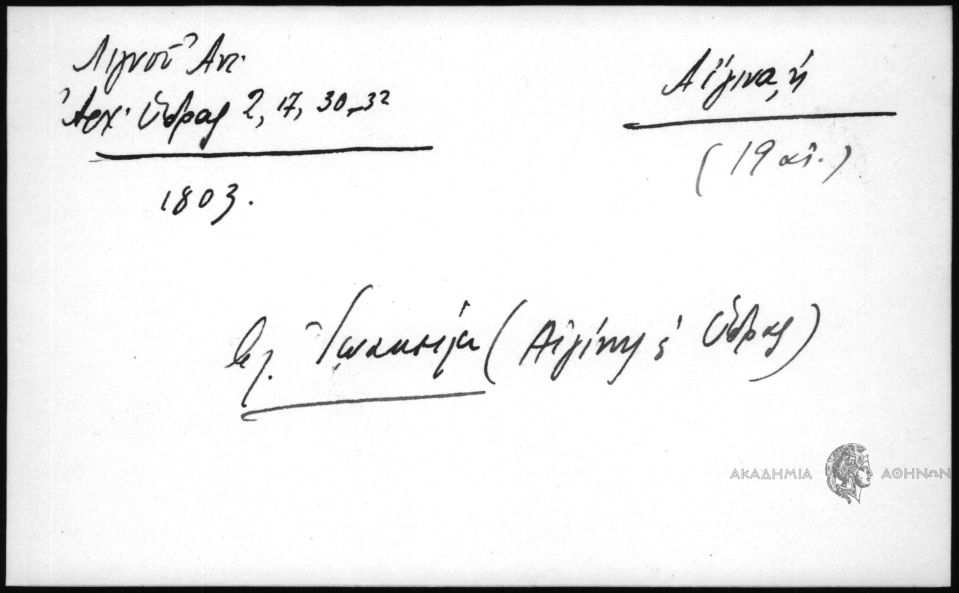 Λιγνοῦ Ἀντ.
Ἀρχ. Ὕδρας 2, 17, 30-32
1803.
Αἴγινα, ἡ
(19 αἰ.)
βλ. Ἰωακείμ (Αἰγίνης & Ὕδρας)
ΑΚΑΔΗΜΙΑ ΑΘΗΝΩΝ